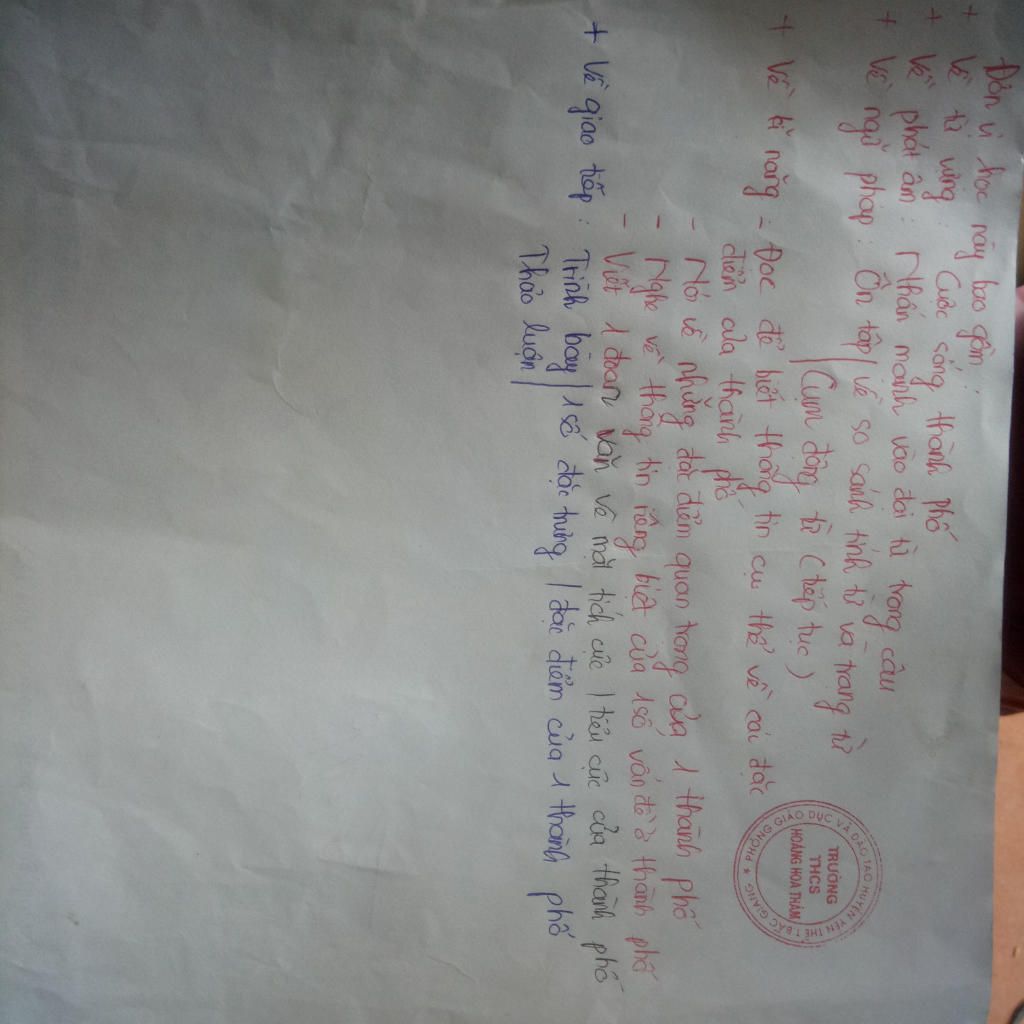 Đơn vị học này bao gồm:
+ Về từ vựng: Cuộc sống thành phố
+ Về phát âm: Nhấn mạnh vào đại từ trong câu
+ Về ngữ pháp: Ôn tập / về so sánh tính từ và trạng từ
/ Cụm động từ (tiếp tục)
+ Về kĩ năng - Đọc để biết thông tin cụ thể về các đặc
điểm của thành phố
- Nói về những đặc điểm quan trọng của 1 thành phố
- Nghe về thông tin riêng biệt của 1 số vấn đề ở thành phố
- Viết 1 đoạn văn về mặt tích cực / tiêu cực của thành phố
+ Về giao tiếp: Trình bày / 1 số đặc trưng / đặc điểm của 1 thành phố
Thảo luận /
PHÒNG GIÁO DỤC VÀ ĐÀO TẠO HUYỆN YÊN THẾ T BẮC GIANG ★
TRƯỜNG
THCS
HOÀNG HOA THÁM